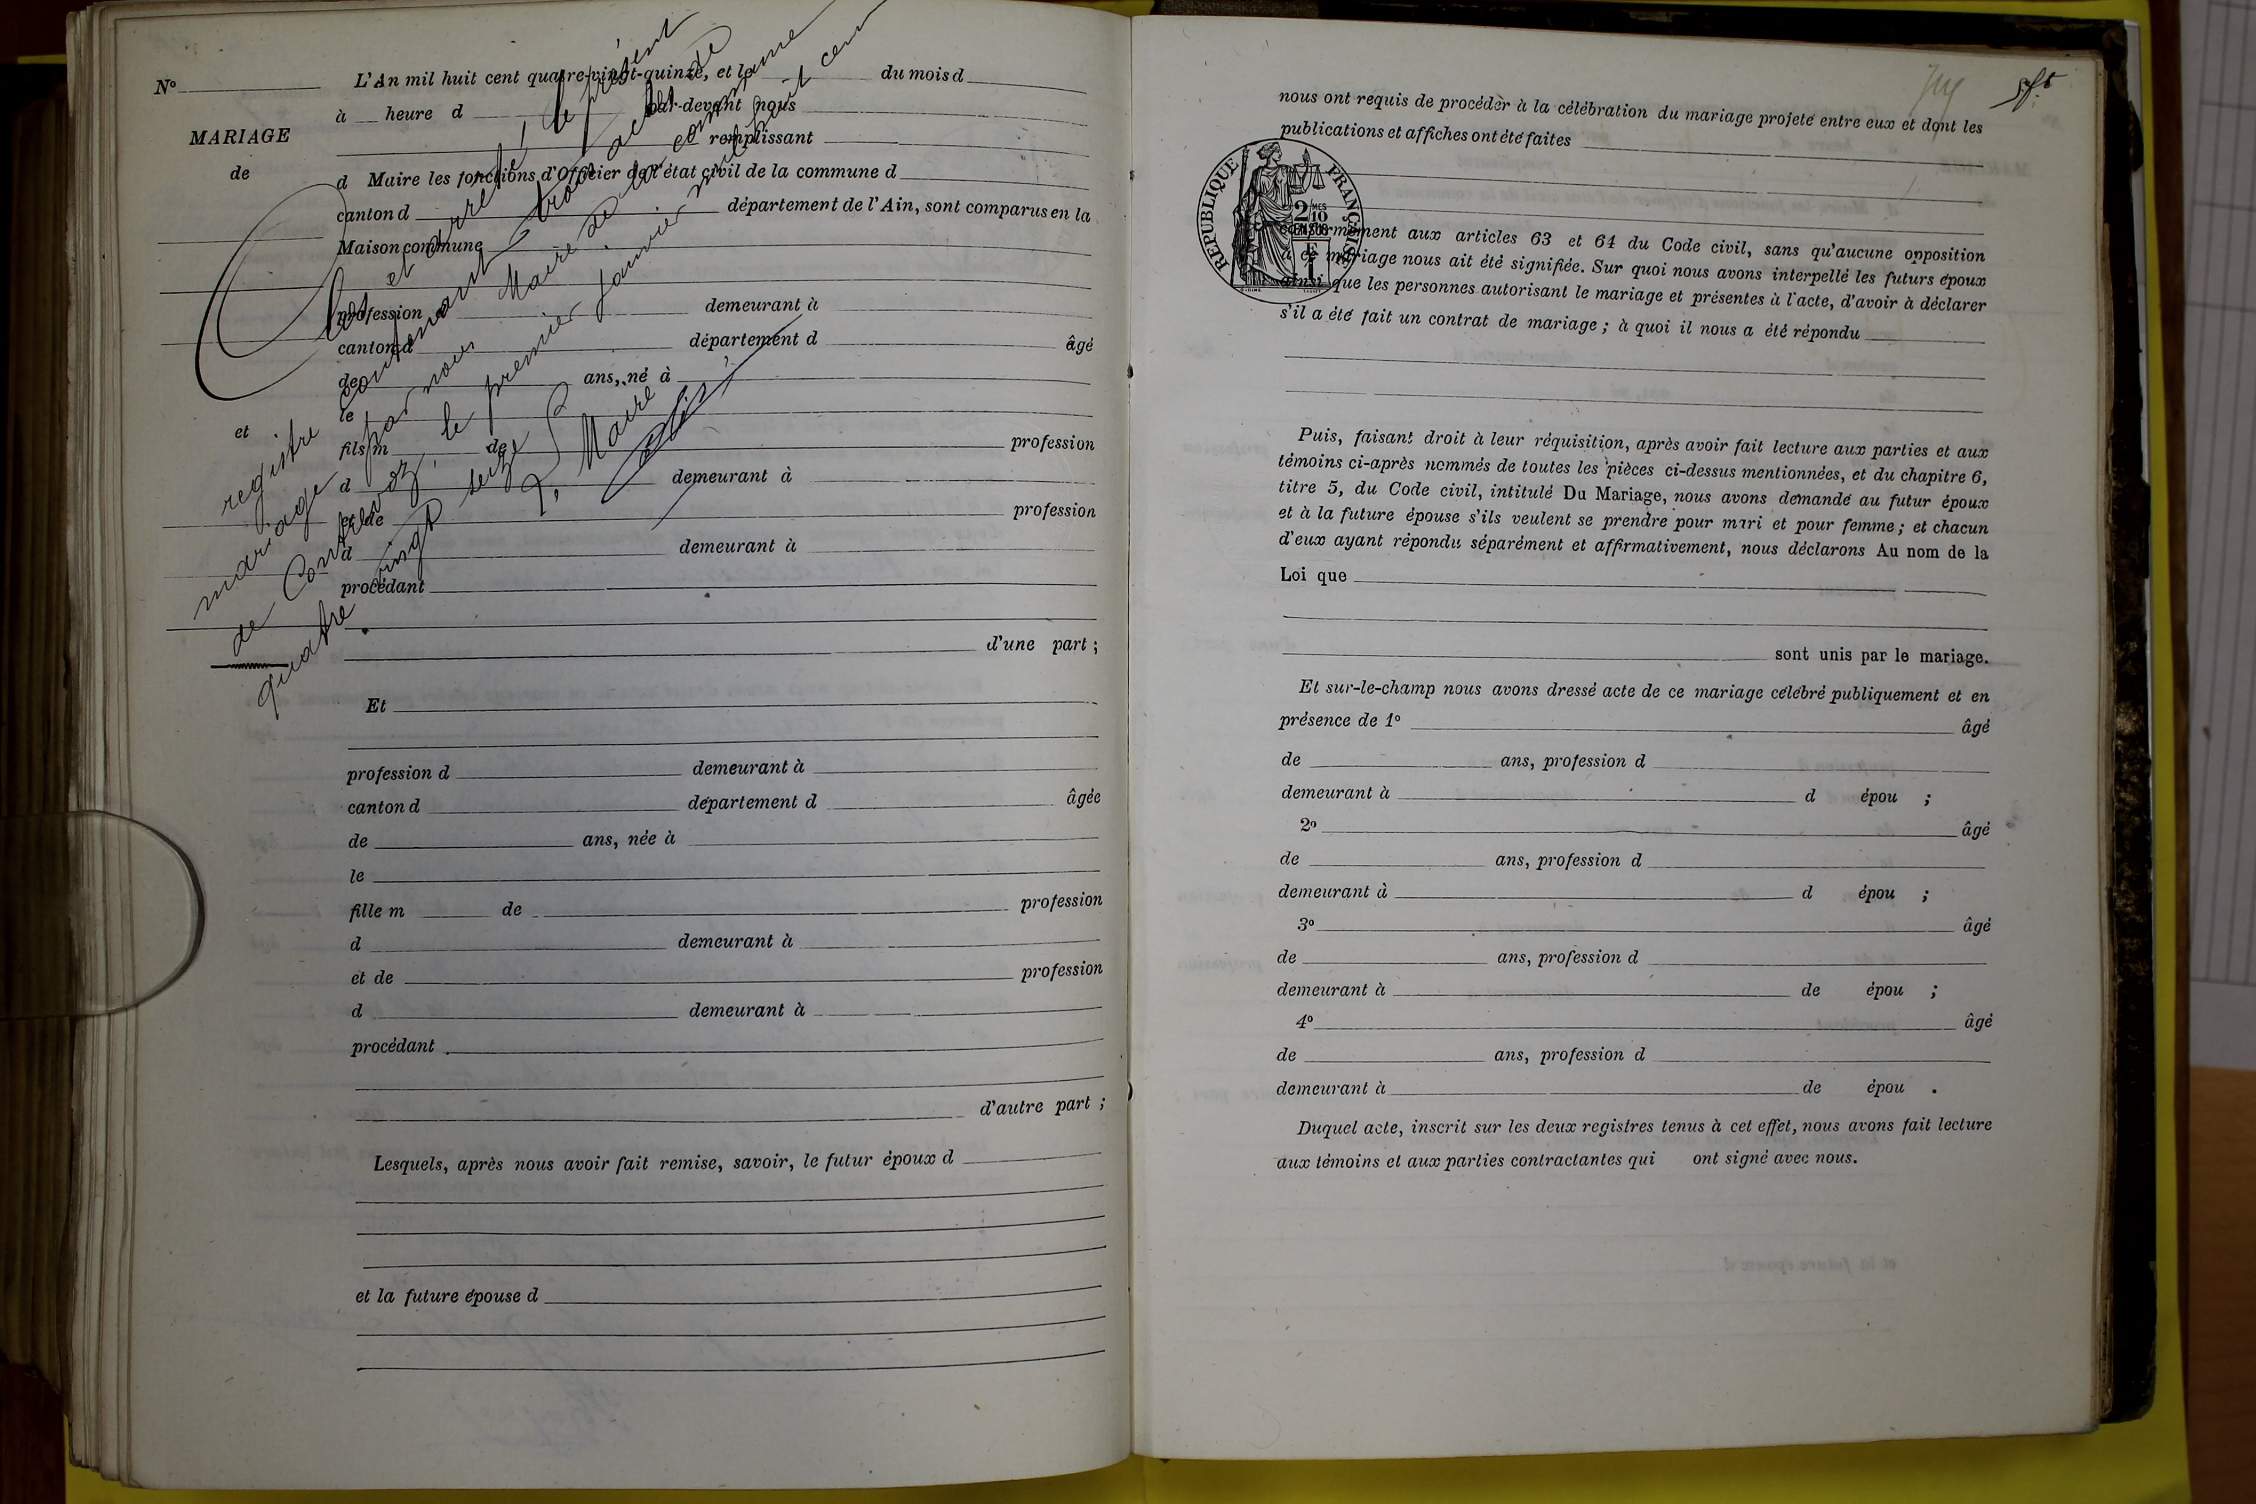 N° L'An mil huit cent quatre-vingt-quinze, et le du mois d
à heure d par-devant nous
remplissant
MARIAGE
de
d Maire les fonctions d'Officier de l'état civil de la commune d
canton d département de l'Ain, sont comparus en la
Maison commune
profession demeurant à
canton d département d âgé
de ans, né à
le
et
fils m de profession
d demeurant à
et de profession
d demeurant à
procédant
d'une part ;
Clos et arrêté, le présent
registre contenant trois actes de
mariage par nous Maire de la commune
de Confrevoz, le premier janvier mil huit cent
quatre vingt seize
Le Maire
Et
profession d demeurant à
canton d département d âgée
de ans, née à
le
fille m de profession
d demeurant à
et de profession
d demeurant à
procédant
d'autre part ;
Lesquels, après nous avoir fait remise, savoir, le futur époux d
et la future épouse d
nous ont requis de procéder à la célébration du mariage projeté entre eux et dont les
publications et affiches ont été faites
RÉPUBLIQUE FRANÇAISE
2/10 MES
EN SUS
conformément aux articles 63 et 64 du Code civil, sans qu'aucune opposition
à ce mariage nous ait été signifiée. Sur quoi nous avons interpellé les futurs époux
ainsi que les personnes autorisant le mariage et présentes à l'acte, d'avoir à déclarer
s'il a été fait un contrat de mariage ; à quoi il nous a été répondu
Puis, faisant droit à leur réquisition, après avoir fait lecture aux parties et aux
témoins ci-après nommés de toutes les pièces ci-dessus mentionnées, et du chapitre 6,
titre 5, du Code civil, intitulé Du Mariage, nous avons demandé au futur époux
et à la future épouse s'ils veulent se prendre pour mari et pour femme ; et chacun
d'eux ayant répondu séparément et affirmativement, nous déclarons Au nom de la
Loi que
sont unis par le mariage.
Et sur-le-champ nous avons dressé acte de ce mariage célébré publiquement et en
présence de 1° âgé
de ans, profession d
demeurant à d épou ;
2° âgé
de ans, profession d
demeurant à d épou ;
3° âgé
de ans, profession d
demeurant à de épou ;
4° âgé
de ans, profession d
demeurant à de épou .
Duquel acte, inscrit sur les deux registres tenus à cet effet, nous avons fait lecture
aux témoins et aux parties contractantes qui ont signé avec nous.